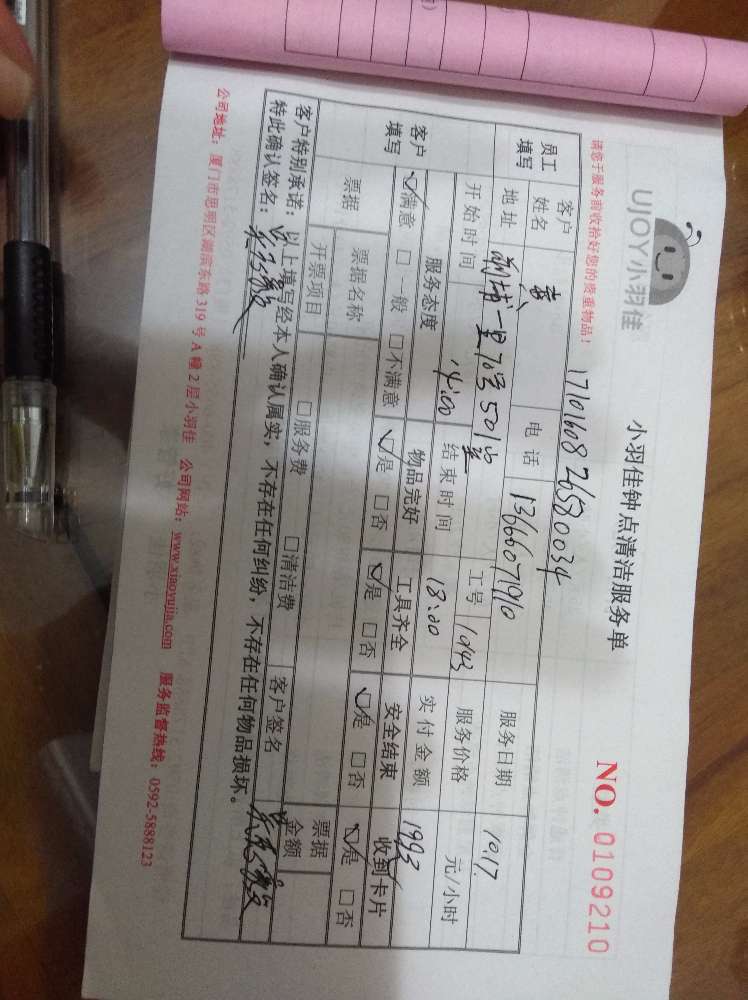 UJOY小羽佳
小羽佳钟点清洁服务单
NO. 0109210
请您于服务前收拾好您的贵重物品！
1710160826580034
员工填写 客户姓名 电话 13666071910 服务日期 1017
地址 一里70号501 工号 10143 服务价格 元/小时
开始时间 14:00 结束时间 18:00 实付金额 1993
客户填写 服务态度 物品完好 工具齐全 安全结束 收到卡片
☑满意 □一般 □不满意 ☑是 □否 ☑是 □否 ☑是 □否 ☑是 □否
票据 票据名称 票据金额
开票项目 □服务费 □清洁费 客户签名
客户特别承诺：以上填写经本人确认属实，不存在任何纠纷，不存在任何物品损坏。
特此确认签名：
公司地址：厦门市思明区湖滨东路319号A幢2层小羽佳 公司网站：www.xiaoyujia.com 服务监督热线：0592-5888123